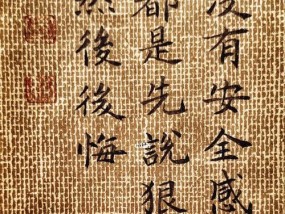 沒有安全感
都是先說狠
然後後悔